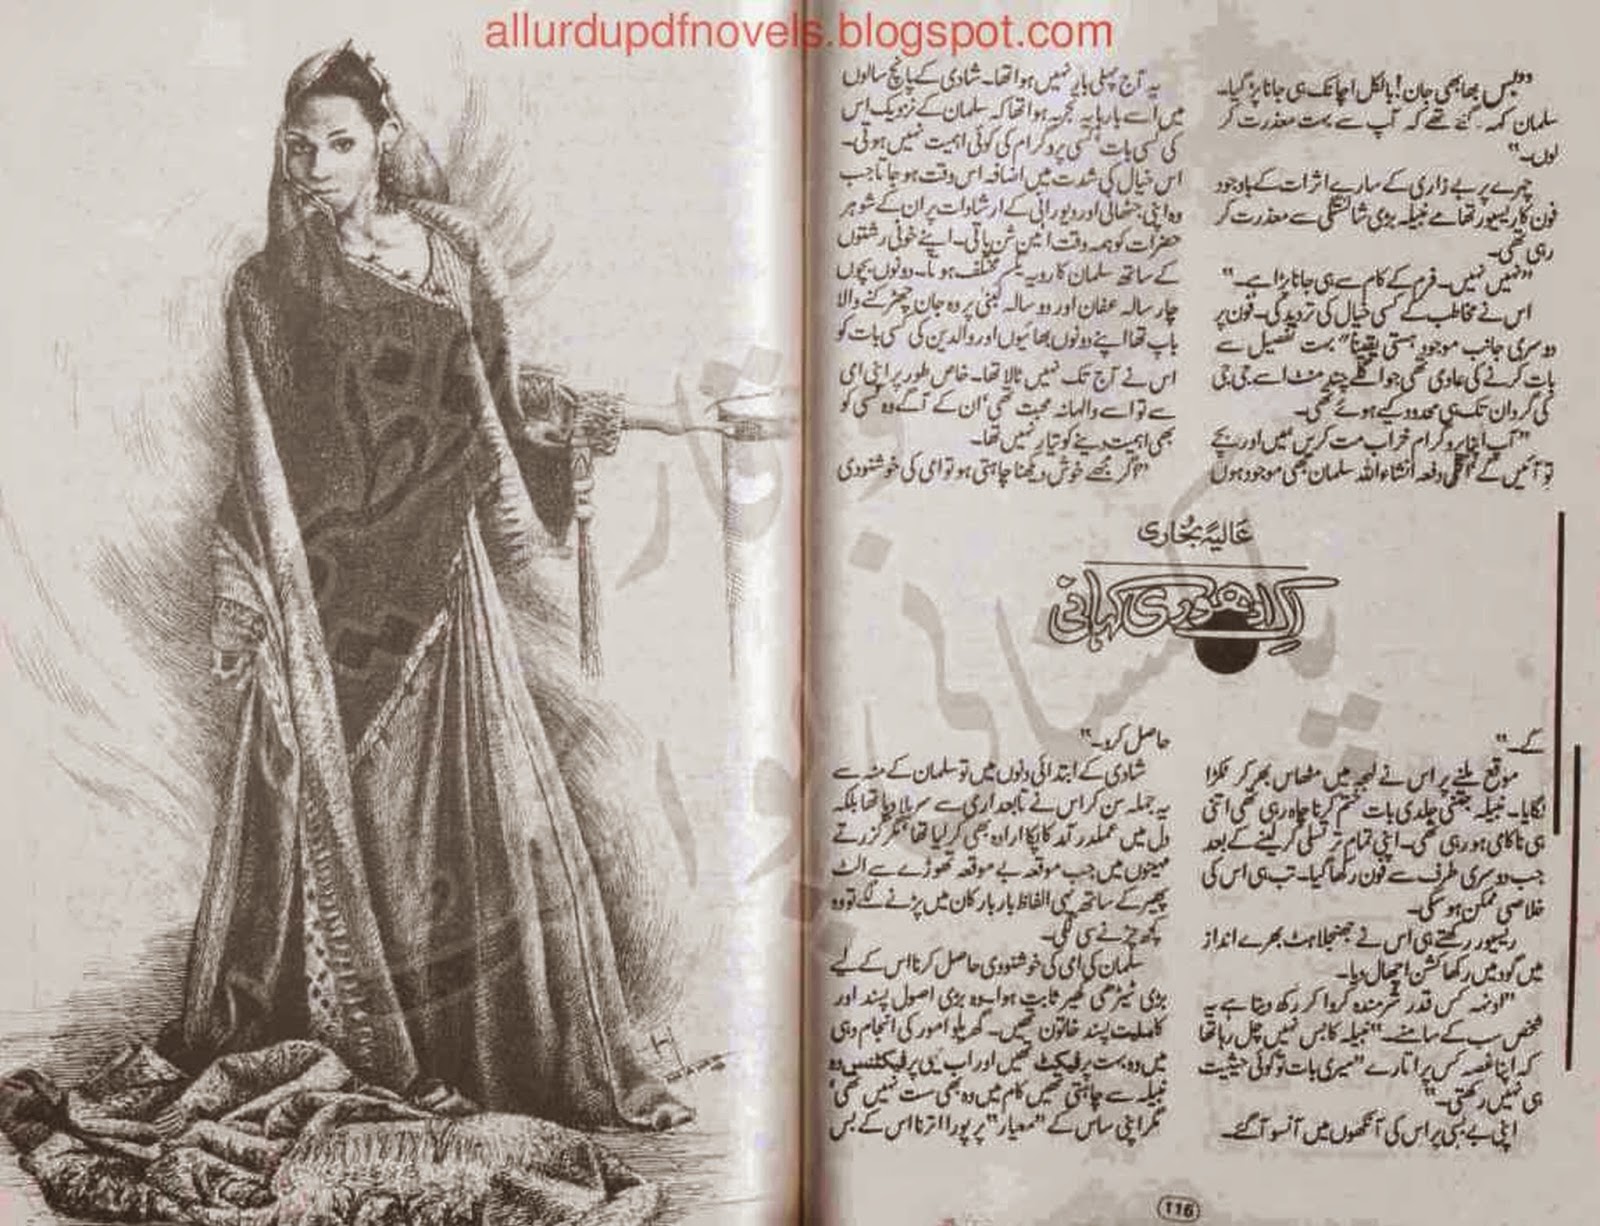 allurdupdfnovels.blogspot.com
"بس بھابھی جان! بالکل اچانک ہی جانا پڑ گیا۔
سلمان کہہ گئے تھے کہ آپ سے بہت معذرت کر
لوں۔"
چہرے پر بے زاری کے سارے اثرات کے باوجود
فون کا ریسیور تھامے نبیلہ بڑی شائستگی سے معذرت کر
رہی تھی۔
"نہیں نہیں۔ فرم کے کام سے ہی جانا پڑا ہے۔"
اس نے مخاطب کے کسی خیال کی تردید کی۔ فون پر
دوسری جانب موجود ہستی یقیناً بہت تفصیل سے
بات کرنے کی عادی تھی جو اگلے چند منٹ اسے جی جی
کی گردان تک ہی محدود کیے ہوئے تھی۔
"آپ اپنا پروگرام خراب مت کریں میں اور بچے
تو آئیں گے اگلی دفعہ انشاء اللہ سلمان بھی موجود ہوں
عالیہ بخاری
اک ادھوری کہانی
گے۔"
موقع ملنے پر اس نے لہجے میں مٹھاس بھر کر ٹکڑا
لگایا۔ نبیلہ جتنی جلدی بات ختم کرنا چاہ رہی تھی اتنی
ہی ناکامی ہو رہی تھی۔ اپنی تمام تر تسلی کر لینے کے بعد
جب دوسری طرف سے فون رکھا گیا۔ تب ہی اس کی
خلاصی ممکن ہو سکی۔
ریسیور رکھتے ہی اس نے جھنجلاہٹ بھرے انداز
میں گود میں رکھا کشن اچھال دیا۔
"اونہہ کس قدر شرمندہ کروا کر رکھ دیتا ہے یہ
شخص سب کے سامنے۔" نبیلہ کا بس نہیں چل رہا تھا
کہ اپنا غصہ کس پر اتارے "میری بات تو کوئی حیثیت
ہی نہیں رکھتی۔"
اپنی بے بسی پر اس کی آنکھوں میں آنسو آ گئے۔
یہ آج پہلی بار نہیں ہوا تھا۔ شادی کے پانچ سالوں
میں اسے بارہا یہ تجربہ ہوا تھا کہ سلمان کے نزدیک اس
کی کسی بات، کسی پروگرام کی کوئی اہمیت نہیں ہوتی۔
اس خیال کی شدت میں اضافہ اس وقت ہو جاتا جب
وہ اپنی جٹھانی اور دیورانی کے ارشادات پر ان کے شوہر
حضرات کو ہمہ وقت آمین سن پاتی۔ اپنے خونی رشتوں
کے ساتھ سلمان کا رویہ یکسر مختلف ہوتا۔ دونوں بچوں
چار سالہ عفان اور دو سالہ لبنیٰ پر وہ جان چھڑکنے والا
باپ تھا اپنے دونوں بھائیوں اور والدین کی کسی بات کو
اس نے آج تک نہیں ٹالا تھا۔ خاص طور پر اپنی امی
سے تو اسے والہانہ محبت تھی، ان کے آگے وہ کسی کو
بھی اہمیت دینے کو تیار نہیں تھا۔
"اگر مجھے خوش دیکھنا چاہتی ہو تو امی کی خوشنودی
حاصل کرو۔"
شادی کے ابتدائی دنوں میں تو سلمان کے منہ سے
یہ جملہ سن کر اس نے تابعداری سے سر ہلا دیا تھا بلکہ
دل میں عملدرآمد کا پکا ارادہ بھی کر لیا تھا، مگر گزرتے
مہینوں میں جب موقعہ بے موقعہ تھوڑے سے الٹ
پھیر کے ساتھ یہی الفاظ بار بار کان میں پڑنے لگے تو وہ
کچھ چڑنے سی لگی۔
سلمان کی امی کی خوشنودی حاصل کرنا اس کے لیے
بڑی ٹیڑھی کھیر ثابت ہوا۔ وہ بڑی اصول پسند اور
کاملیت پسند خاتون تھیں۔ گھریلو امور کی انجام دہی
میں وہ بہت پرفیکٹ تھیں اور اب یہی پرفیکٹنس وہ
نبیلہ سے چاہتی تھیں کام میں وہ بھی ست نہیں تھی،
مگر اپنی ساس کے "معیار" پر پورا اترنا اس کے بس
116